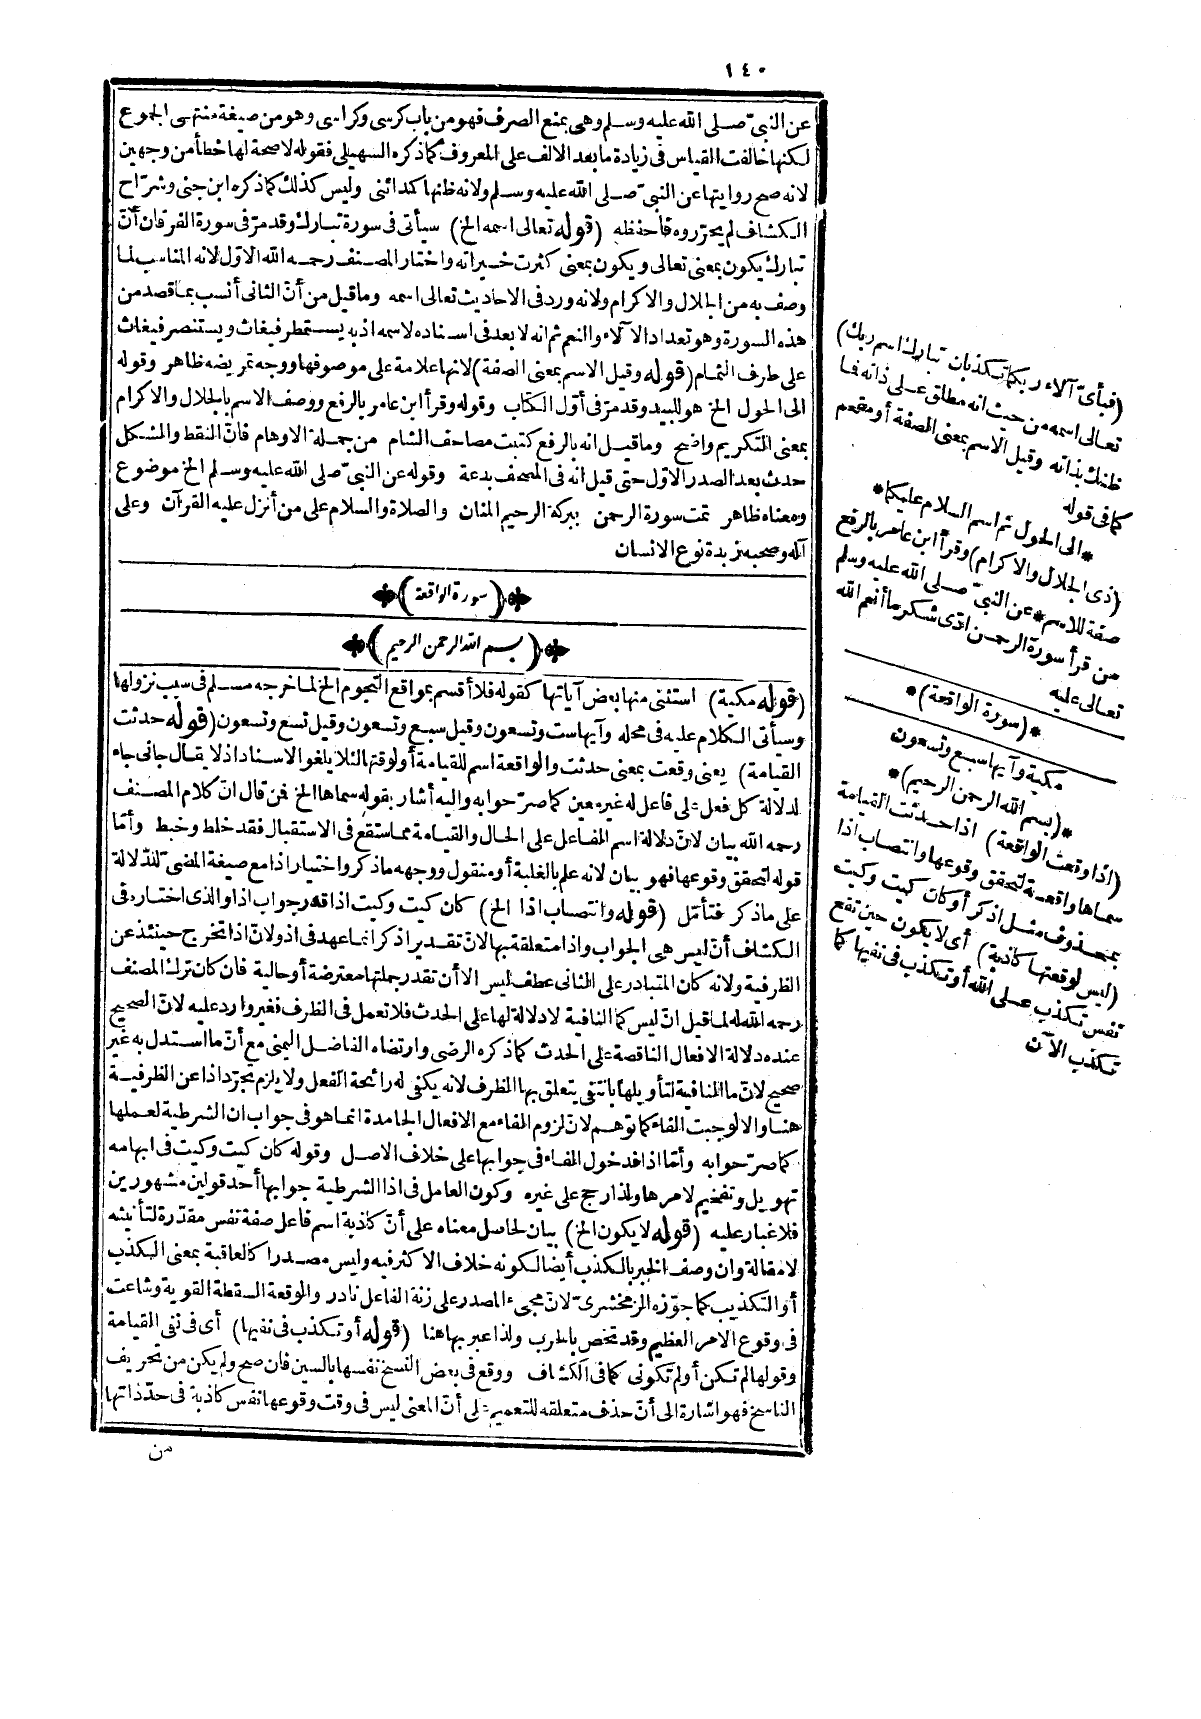 ١٤٠
عن النبيّ صلى الله عليه وسلم وهى بمنع الصرف فهو من باب كرسى وكراسى وهو من صيغة منتهى الجموع
لكنها خالفت القياس فى زيادة ما بعد الالف على المعروف كما ذكره السهيلى فقوله لا صحة لها خطأ من وجهين
لانه صح روايتها عن النبيّ صلى الله عليه وسلم ولانه ظنها كدائنى وليس كذلك كما ذكره ابن جنى وشرّاح
الكشاف لم يحرّروه فاحفظه (قوله تعالى اسمه الخ) سيأتى فى سورة تبارك وقد مرّ فى سورة الفرقان أنّ
تبارك يكون بمعنى تعالى ويكون بمعنى كثرت خيراته واختار المصنف رحمه الله الاوّل لانه المناسب لما
وصف به من الجلال والاكرام ولانه ورد فى الاحاديث تعالى اسمه وما قيل من أنّ الثانى أنسب بما قصد من
هذه السورة وهو تعداد الآلاء والنعم ثم انه لا بعد فى اسناده لاسمه اذ به يستمطر فيغاث ويستنصر فيغاث
على طرف الثمام (قوله وقيل الاسم بمعنى الصفة) لانها علامة على موصوفها ووجه تمريضه ظاهر وقوله
الى الحول الخ هو للبيد وقد مرّ فى أوّل الكتاب وقوله وقرأ ابن عامر بالرفع ووصف الاسم بالجلال والاكرام
بمعنى التكريم واضح وما قيل انه بالرفع كتبت مصاحف الشام من جملة الاوهام فانّ النقط والشكل
حدث بعد الصدر الاوّل حتى قيل انه فى المصحف بدعة وقوله عن النبيّ صلى الله عليه وسلم الخ موضوع
ومعناه ظاهر تمت سورة الرحمن ببركة الرحيم المنان والصلاة والسلام على من أنزل عليه القرآن وعلى
آله وصحبه زبدة نوع الانسان
(سورة الواقعة)
(بسم الله الرحمن الرحيم)
(قوله مكية) استثنى منها بعض آياتها كقوله فلا أقسم بمواقع النجوم الخ لما خرجه مسلم فى سبب نزولها
وسيأتى الكلام عليه فى محله وآيها ست وتسعون وقيل سبع وتسعون وقيل تسع وتسعون (قوله حدثت
القيامة) يعنى وقعت بمعنى حدثت والواقعة اسم للقيامة أو لوقتها لئلا يلغو الاسناد اذ لا يقال جانى جاء
لدلالة كل فعل على فاعل له غير معين كما صرّحوا به واليه أشار بقوله سماها الخ فمن قال انّ كلام المصنف
رحمه الله بيان لانّ دلالة اسم الفاعل على الحال والقيامة مما ستقع فى الاستقبال فقد خلط وخبط وأمّا
قوله لتحقق وقوعها فهو بيان لانه علم بالغلبة أو منقول ووجهه ما ذكر واختيار اذا مع صيغة المضىّ للدّلالة
على ماذكر فتأمّل (قوله وانتصاب اذا الخ) كان كيت وكيت اذا قدر جواب اذا والذى اختاره فى
الكشاف أنّ ليس هى الجواب واذا متعلقة بها لانّ تقدير اذكر انما عهد فى اذ ولانّ اذا تخرج حينئذ عن
الظرفية ولانه كان المتبادر على الثانى عطف ليس الا أن تقدر جملتها معترضة أو حالية فان كان ترك المصنف
رحمه الله له لما قيل انّ ليس كما النافية لا دلالة لها على الحدث فلا تعمل فى الظرف فغير وارد عليه لانّ الصحيح
عنده دلالة الافعال الناقصة على الحدث كما ذكره الرضى وارتضاه الفاضل اليمنى مع أنّ ما استدل به غير
صحيح لانّ ما النافية لتأويلها بانتفى يتعلق بها الظرف لانه يكفى له رائحة الفعل ولا يلزم تجرّد اذا عن الظرفية
هنا والا لوجبت الفاء كما توهم لانّ لزوم الفاء مع الافعال الجامدة انما هو فى جواب ان الشرطية لعملها
كما صرّحوا به وأمّا اذا فدخول الفاء فى جوابها على خلاف الاصل وقوله كان كيت وكيت فى ابهامه
تهويل وتفخيم لامرها ولذا رجح على غيره وكون العامل فى اذا الشرطية جوابها أحد قولين مشهورين
فلا غبار عليه (قوله لا يكون الخ) بيان لحاصل معناه على أنّ كاذبة اسم فاعل صفة نفس مقدّرة لتأنيثه
لا مقالة وان وصف الخبر بالكذب أيضا لكونه خلاف الاكثر فيه وليس مصدرا كالعاقبة بمعنى الكذب
أو التكذيب كما جوّزه الزمخشرىّ لانّ مجىء المصدر على زنة الفاعل نادر والوقعة السقطة القوية وشاعت
فى وقوع الامر العظيم وقد تخص بالحرب ولذا عبر بها هنا (قوله أو تكذب فى نفيها) أى فى نفى القيامة
وقولها لم تكن أو لم تكونى كما فى الكشاف ووقع فى بعض النسخ نفسها بالسين فان صح ولم يكن من تحريف
الناسخ فهو اشارة الى أنّ حذف متعلقه للتعميم على أنّ المعنى ليس فى وقت وقوعها نفس كاذبة فى حدّ ذاتها
من
(فبأىّ آلاء ربكما تكذبان تبارك اسم ربك)
تعالى اسمه من حيث انه مطلق على ذاته فما
ظنك بذاته وقيل الاسم بمعنى الصفة أو مقحم
كما فى قوله
*الى الحول ثم اسم السلام عليكما*
(ذى الجلال والاكرام) وقرأ ابن عامر بالرفع
صفة للاسم * عن النبىّ صلى الله عليه وسلم
من قرأ سورة الرحمن ادّى شكر ما أنعم الله
تعالى عليه
*(سورة الواقعة)*
مكية وآيها سبع وتسعون
*(بسم الله الرحمن الرحيم)*
(اذا وقعت الواقعة) اذا حدثت القيامة
سماها واقعة لتحقق وقوعها وانتصاب اذا
بمحذوف مثل اذكر أو كان كيت وكيت
(ليس لوقعتها كاذبة) أى لا يكون حين تقع
نفس تكذب على الله أو تكذب فى نفيها كما
تكذب الآن